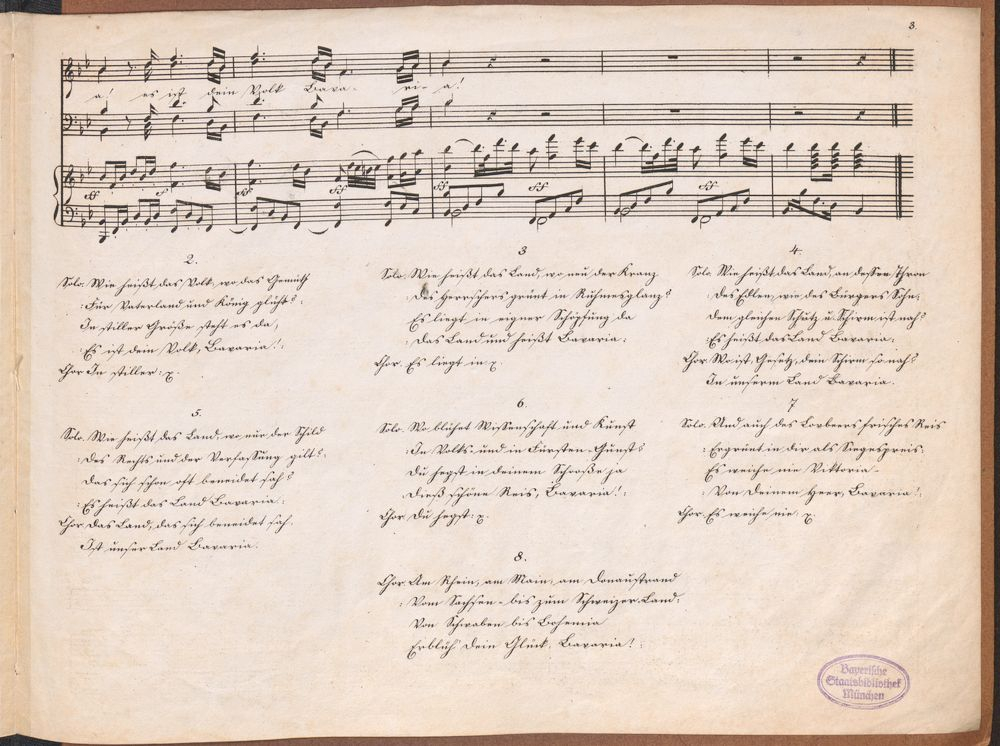 3.
a! es ist dein Volk Bava- ri- a!
ff ff ff ff ff ff
2.
Solo. Wie heißt das Volk, wo das Gemüth
:Für Vaterland und König glüht?
In stiller Größe steht es da,
:Es ist dein Volk, Bavaria!:
Chor In stiller: p.
3
Solo. Wie heißt das Land, wo neu der Kranz
:Des Herrschers grünt in Ruhmesglanz?
Es liegt in eigner Schöpfung da
:Das Land und heißt Bavaria:
Chor. Es liegt in p.
4.
Solo. Wie heißt das Land, an dessen Thron
:Des Edlen, wie des Bürgers Sohn:
Dem gleichen Schutz u. Schirm ist nah?
:Es heißt das Land Bavaria:
Chor. Wo ist, Gesetz, dein Schirm so nah?
In unserm Land Bavaria.
5.
Solo. Wie heißt das Land, wo nur der Schild
:Des Rechts und der Verfassung gilt?:
Das sich schon oft beneidet sah?
:Es heißt das Land Bavaria:
Chor Das Land, das sich beneidet sah.
Ist unser Land Bavaria.
6.
Solo. Wo blühet Wissenschaft und Kunst
:In Volks- und in Fürsten-Gunst?
Du hegst in deinem Schooße ja
:Dieß schöne Reis, Bavaria!:
Chor Du hegst: p.
7
Solo. Und auch des Lorbeers frisches Reis
:Ergrünt in dir als Siegespreis:
Es weiche nie Viktoria
:Von Deinem Heer, Bavaria!:
Chor. Es weiche nie: p.
8.
Chor. Am Rhein, am Main, am Donaustrand
:Vom Sachsen- bis zum Schweizer-Land:
Von Schwaben bis Bohemia
Erblüh' Dein Glück, Bavaria!:
Bayerische
Staatsbibliothek
München